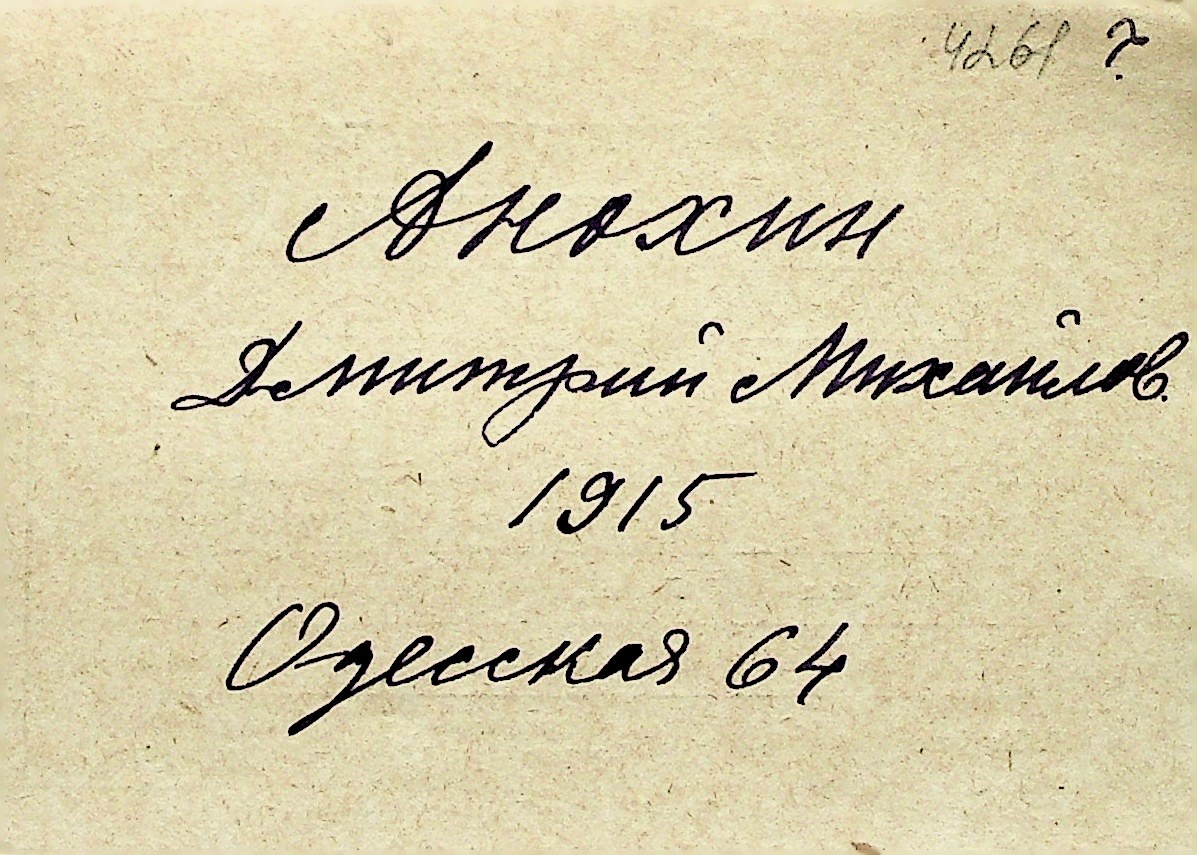 4261 ?
Анохин
Дмитрий Михайлов.
1915
Одесская 64